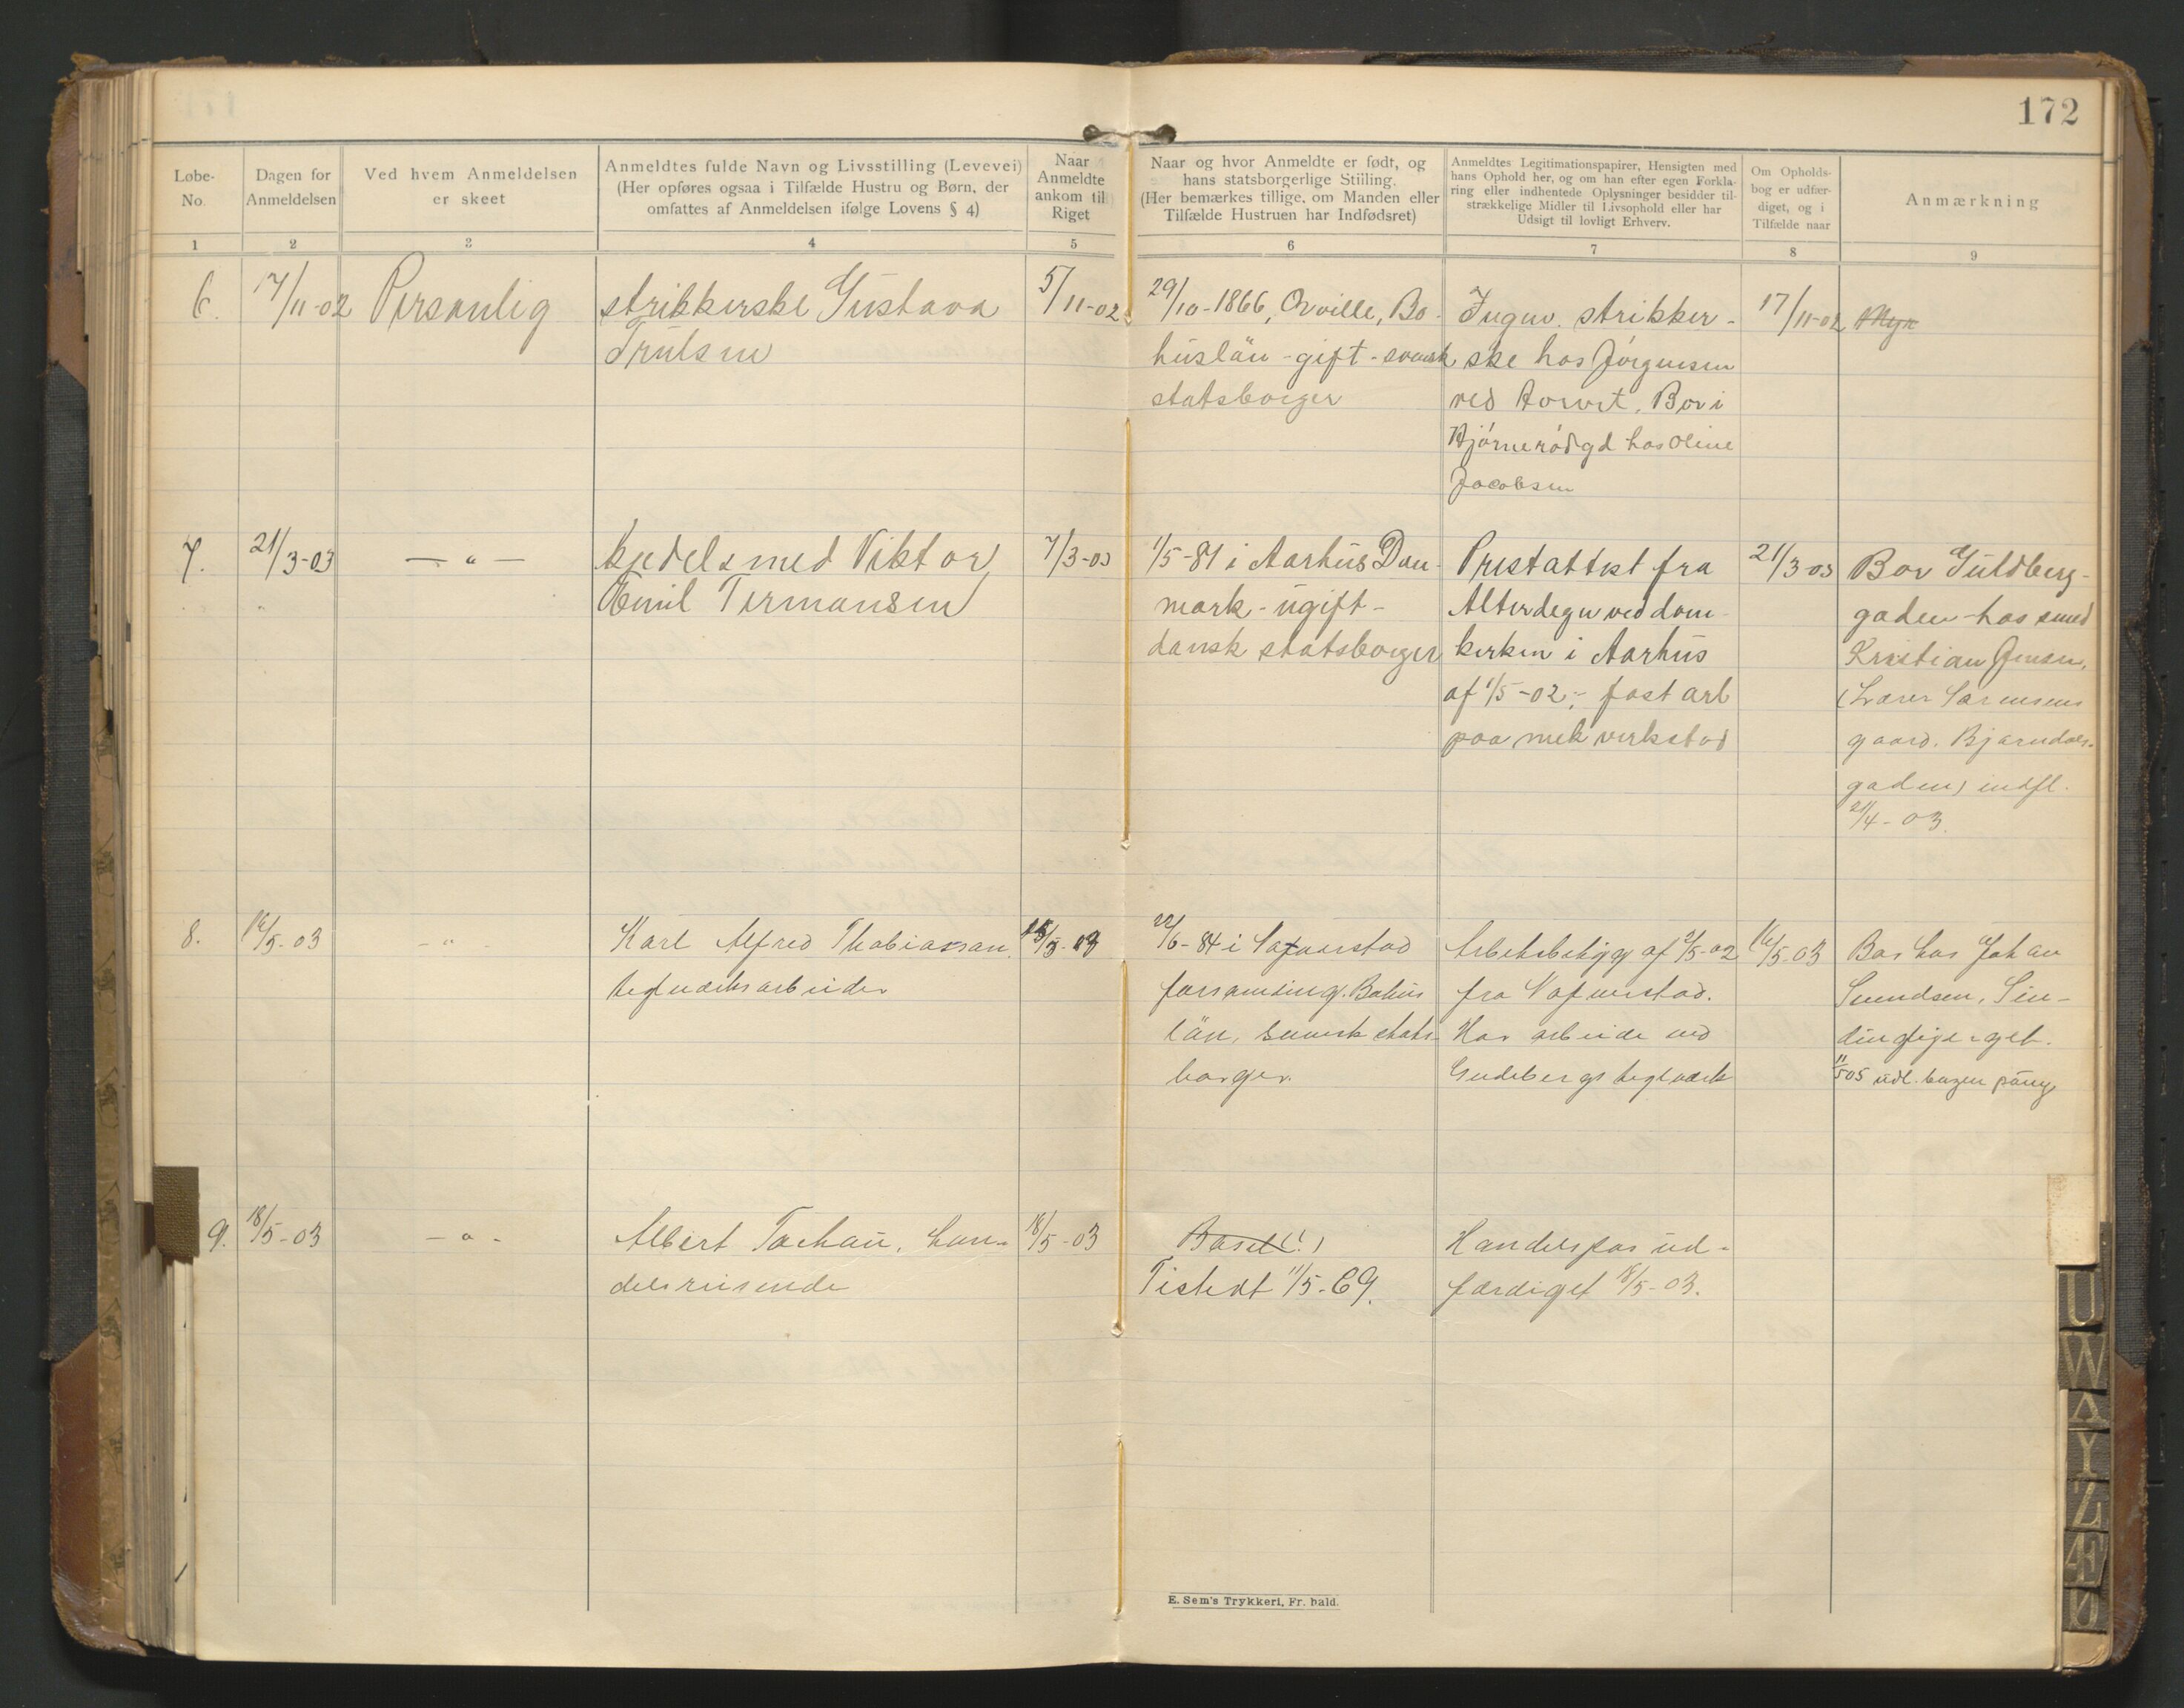 172
Løbe-
No.
Dagen for
Anmeldelsen
Ved hvem Anmeldelsen
er skeet
Anmeldtes fulde Navn og Livsstilling (Levevei)
(Her opføres ogsaa i Tilfælde Hustru og Børn, der
omfattes af Anmeldelsen ifølge Lovens § 4)
Naar
Anmeldte
ankom til
Riget
Naar og hvor Anmeldte er født, og
hans statsborgerlige Stilling.
(Her bemærkes tillige, om Manden eller
Tilfælde Hustruen har Indfødsret)
Anmeldtes Legitimationspapirer, Hensigten med
hans Ophold her, og om han efter egen Forkla-
ring eller indhentede Oplysninger besidder til-
strækkelige Midler til Livsophold eller har
Udsigt til lovligt Erhverv.
Om Opholds-
bog er udfær-
diget, og i
Tilfælde naar
Anmærkning
1 2 3 4 5 6 7 8 9
6.
17/11-02
Personlig
strikkerske Gustava
Trulsen
5/11-02
29/10-1866, Qville, Bo-
huslän - gift - svensk
statsborger
Ingw. strikker-
ske hos Jörgensen
ved Torvet. Bor i
Bjørnerødgd hos Oline
Jacobsen
17/11-02
7.
21/3-03
— " —
kjedelsmed Viktor
Emil Termansen
7/3-03
1/5-81 i Aarhus Dan-
mark - ugift -
dansk statsborger
Prestattest fra
Alterdegn ved dom-
kirken i Aarhus
af 1/5-02; fast arb
paa mek verksted
21/3-03
Bor Guldberg-
gaden hos smed
Kristian Jensen,
(Lærer Sørensens
gaard. Bjarndals-
gaden) indfl.
21/4-03.
8.
16/5-03
- " -
Karl Alfred Thobiassan.
teglværksarbeider
15/5-03
22/6-84 i
forsamling. Bohus
län, svensk stats-
borger.
Arbetsbetyg af 2/5-02
fra
Har arbeide ved
Gudebergs teglværk
16/5-03
Bor hos Johan
Svendsen,
11/5 05 udl. bogen
9.
18/5-03
- " -
Albert Tachau, han-
delsreisende
18/5-03
Basel (!)
Tistedt 11/5-69.
Handelspas ud-
færdiget 18/5-03.
E. Sem's Trykkeri, Fr. hald.
U
W
X
Y
Z
Æ
Ø